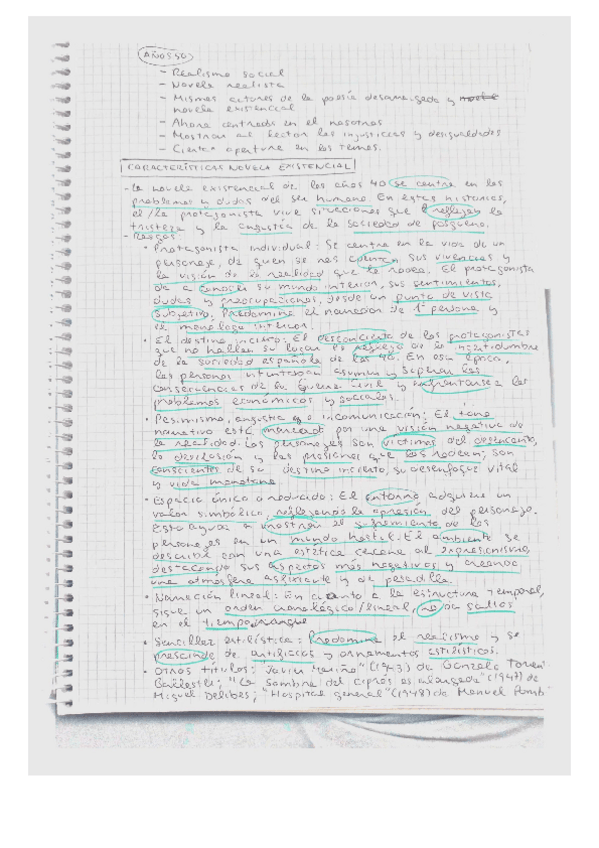 AÑOS 50
- Realismo social
- Novela realista
- Mismos autores de la poesía desarraigada y
novela existencial
- Ahora centrada en el nosotros
- Mostrar al lector las injusticias y desigualdades
- Cierta apertura en los temas.
CARACTERÍSTICAS NOVELA EXISTENCIAL
- La novela existencial de los años 40 se centra en los
problemas y dudas del ser humano. En estas historias,
el/la protagonista vive situaciones que reflejan la
tristeza y la angustia de la sociedad de posguerra.
- Rasgos:
• Protagonista individual: Se centra en la vida de un
personaje, de quien se nos cuentan sus vivencias y
la visión de la realidad que le rodea. El protagonista
da a conocer su mundo interior, sus sentimientos,
dudas y preocupaciones, desde un punto de vista
subjetivo. Predomina el narrador de 1ª persona y
el monólogo interior.
• El destino incierto: El desconcierto de los protagonistas
que no hallan su lugar es reflejo de la incertidumbre
de la sociedad española de los 40. En esa época,
las personas intentaban asumir y superar las
consecuencias de la Guerra Civil y enfrentarse a los
problemas económicos y sociales.
• Pesimismo, angustia e incomunicación: El tono
narrativo está marcado por una visión negativa de
la realidad. Los personajes son víctimas del desencanto,
la desolación y las presiones que los rodean; son
conscientes de su destino incierto, su desenfoque vital
y vida monótona.
• Espacio único o reducido: El entorno adquiere un
valor simbólico, reflejando la opresión del personaje.
Esto ayuda a mostrar el sufrimiento de los
personajes en un mundo hostil. El ambiente se
describe con una estética cercana al expresionismo,
destacando sus aspectos más negativos y creando
una atmósfera asfixiante y de pesadilla.
• Narración lineal: En cuanto a la estructura temporal,
sigue un orden cronológico/lineal, no da saltos
en el tiempo
• Sencillez estilística: Predomina el realismo y se
prescinde de artificios y ornamentos estilísticos.
• Otros títulos: "Javier Mariño" (1943) de Gonzalo Torren
Ballester; "La sombra del ciprés es alargada" (1947) de
Miguel Delibes; "Hospital general" (1948) de Manuel Pomb